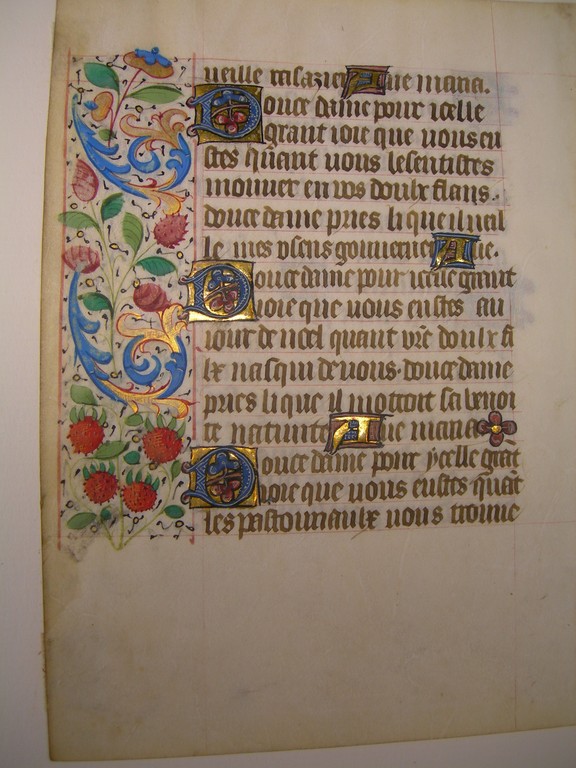 ueille rasazier Aue maria.
Douce dame pour icelle
grant ioie que uous eu
stes quant uous le sentistes
mouuer en vos doulx flans.
douce dame pries li que il ueil
le mes v sens gouuerner Aue.
Douce dame pour icelle grant
ioie que uous eustes au
iour de noel quant vre doulx fi
lx nasqui de uous. douce dame
pries li que il mottroit sa benoi
te natiuite Aue maria
Douce dame pour ycelle grāt
ioie que uous eustes quāt
les pastouriaulx uous trouue